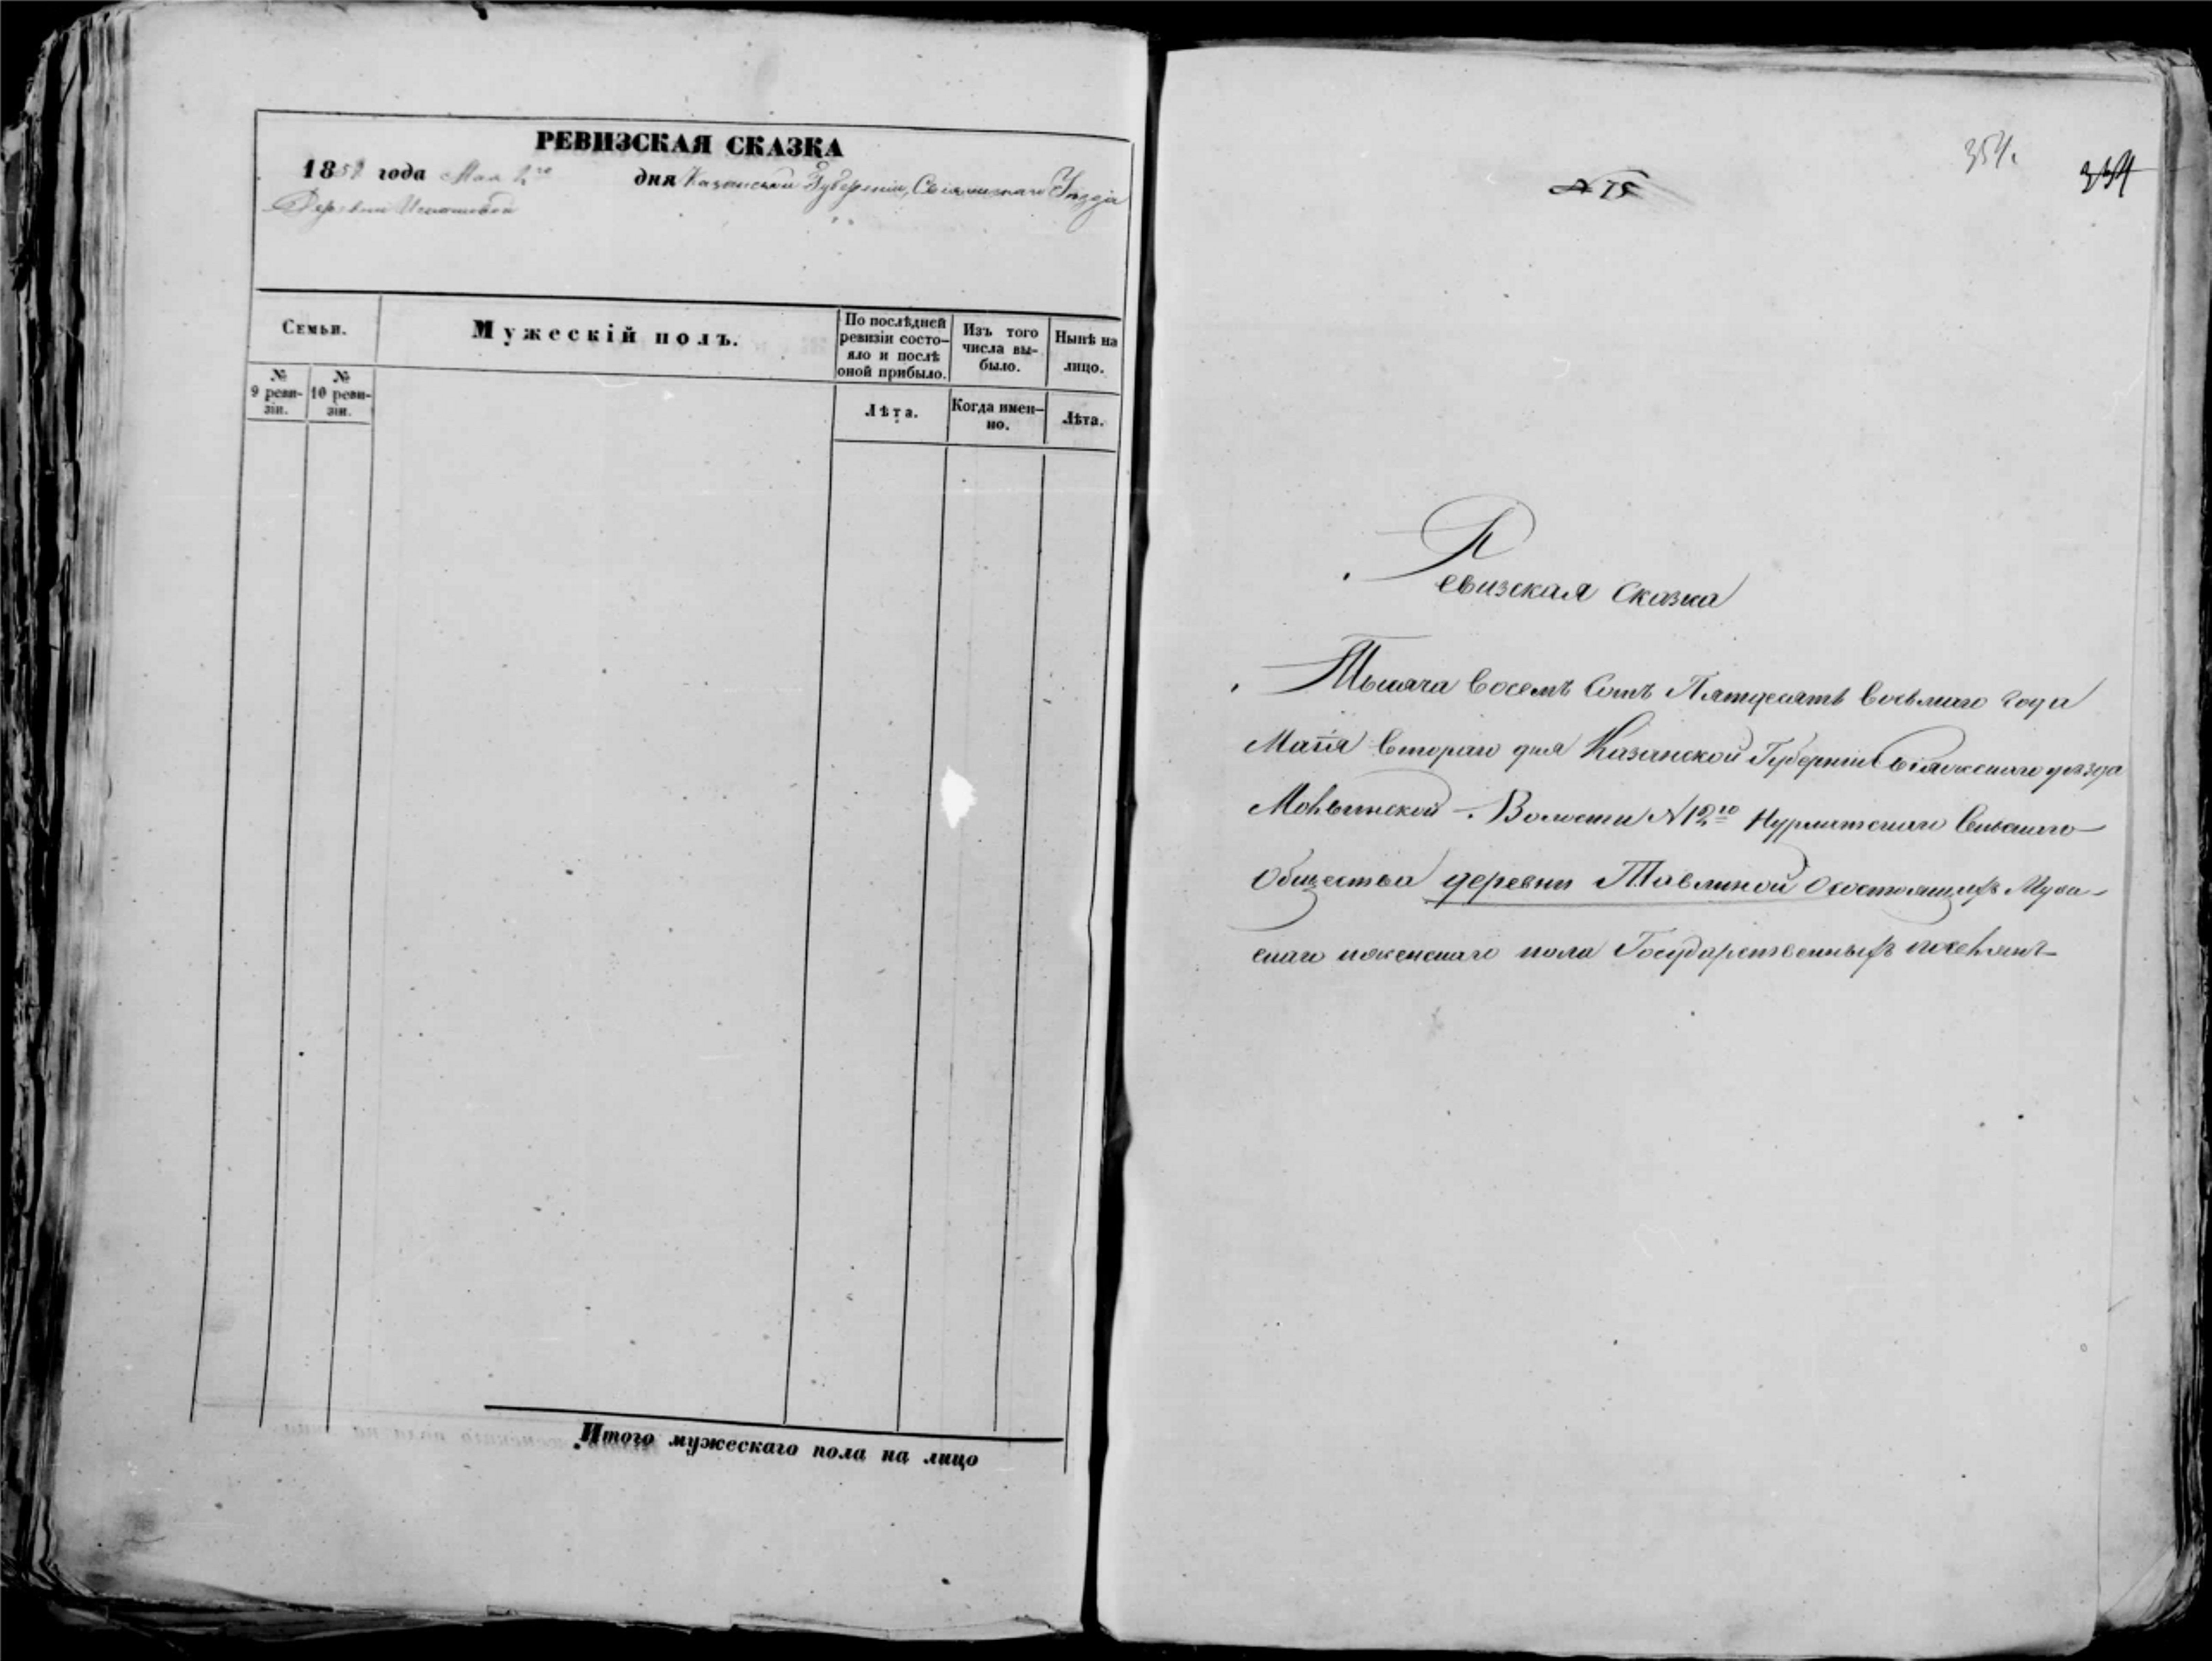 РЕВИЗСКАЯ СКАЗКА
1858 года Мая 2го дня Казанской Губерніи, Свіяжскаго Уѣзда
Деревни
Семьи.
Мужескій полъ.
По послѣдней ревизіи состо-яло и послѣ оной прибыло.
Изъ того числа вы-было.
Нынѣ на лицо.
№ 9 реви-зіи.
№ 10 реви-зіи.
Лѣта.
Когда имен-но.
Лѣта.
Итого мужескаго пола на лицо
354.
354
№ 15
Ревизская сказка
Тысяча восемъ сотъ Пятдесятъ восьмаго года
Маія втораго дня Казанской Губерніи Свіяжскаго уѣзда
Волости №12го Нурлатскаго сельскаго
Общества деревни Тавлиной о состоящихъ Муже-
скаго и женскаго пола Государственныхъ поселянъ